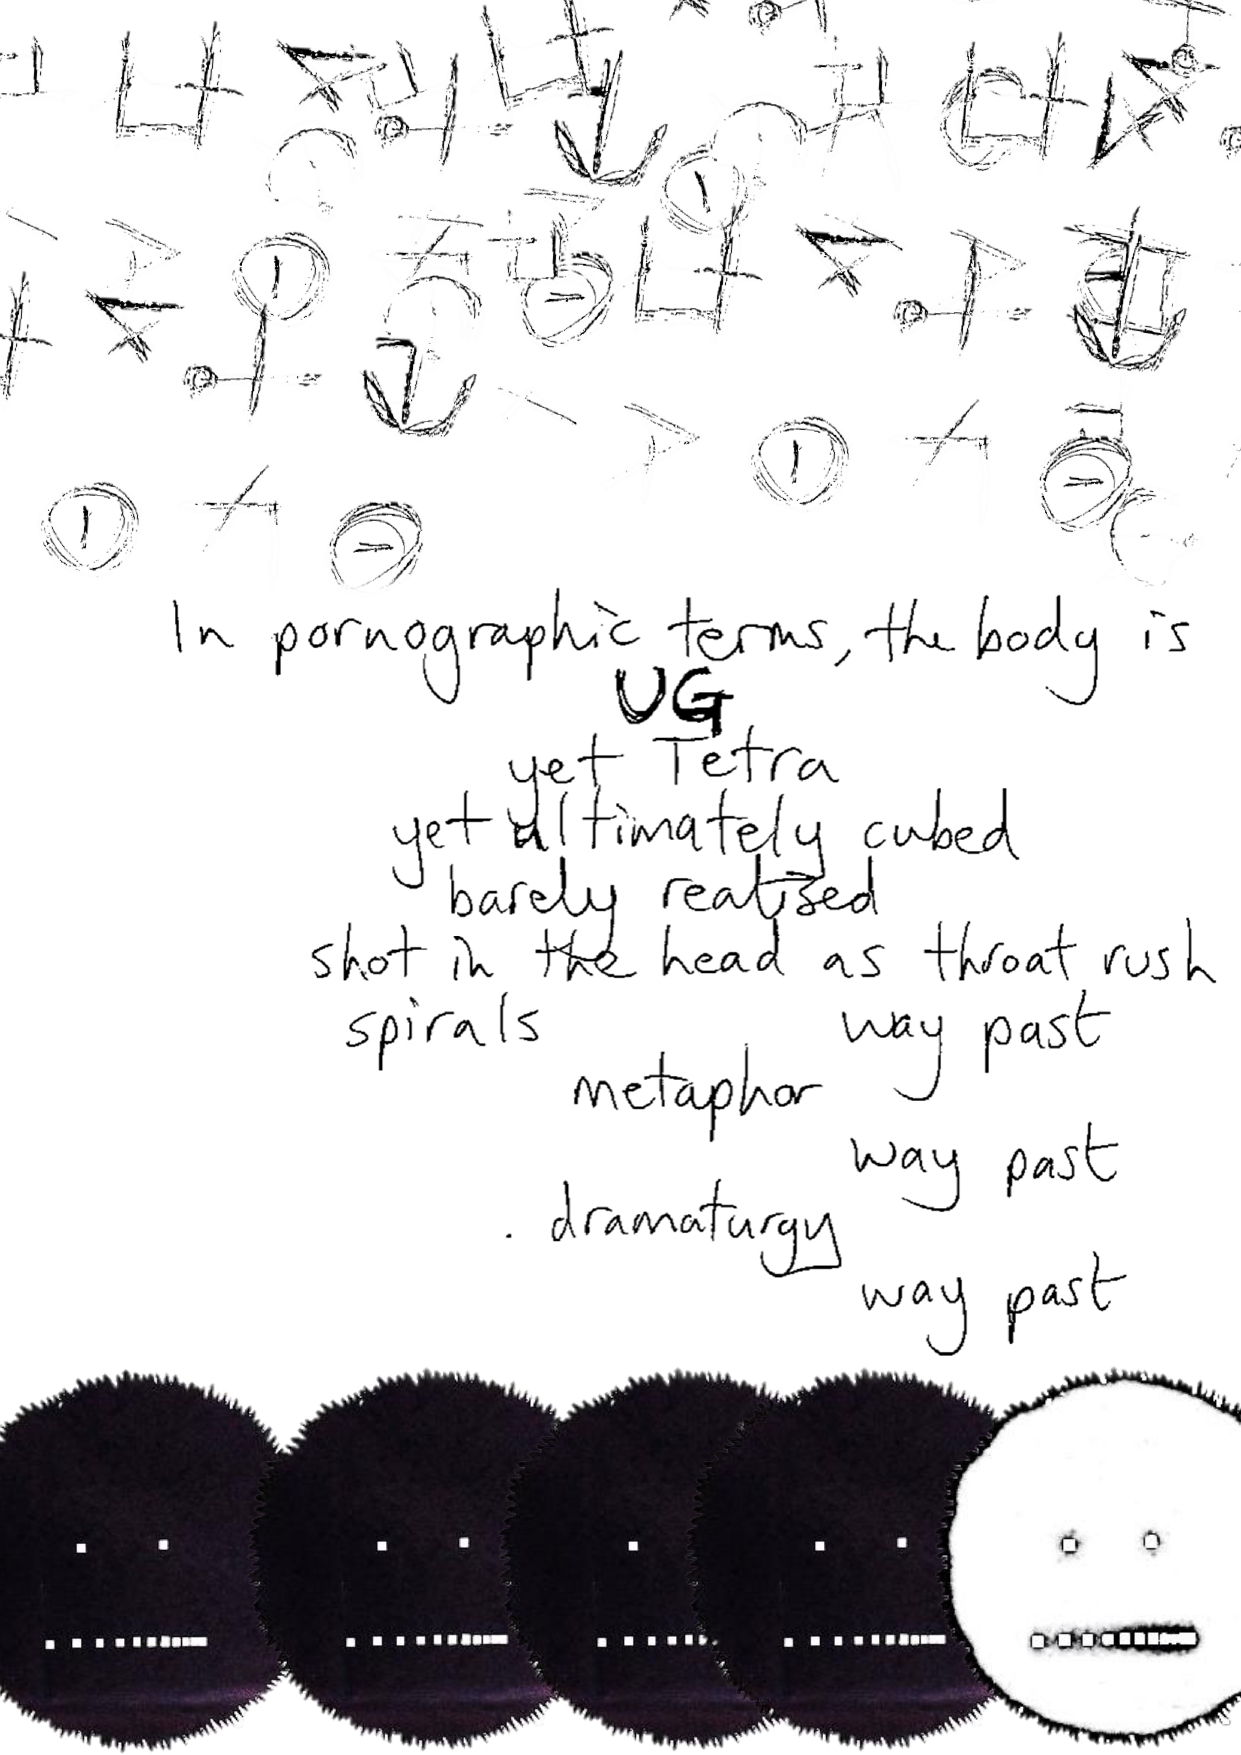 In pornographic terms, the body is
UG
yet Tetra
yet ultimately cubed
barely realised
shot in the head as throat rush
spirals way past
metaphor
way past
. dramaturgy
way past